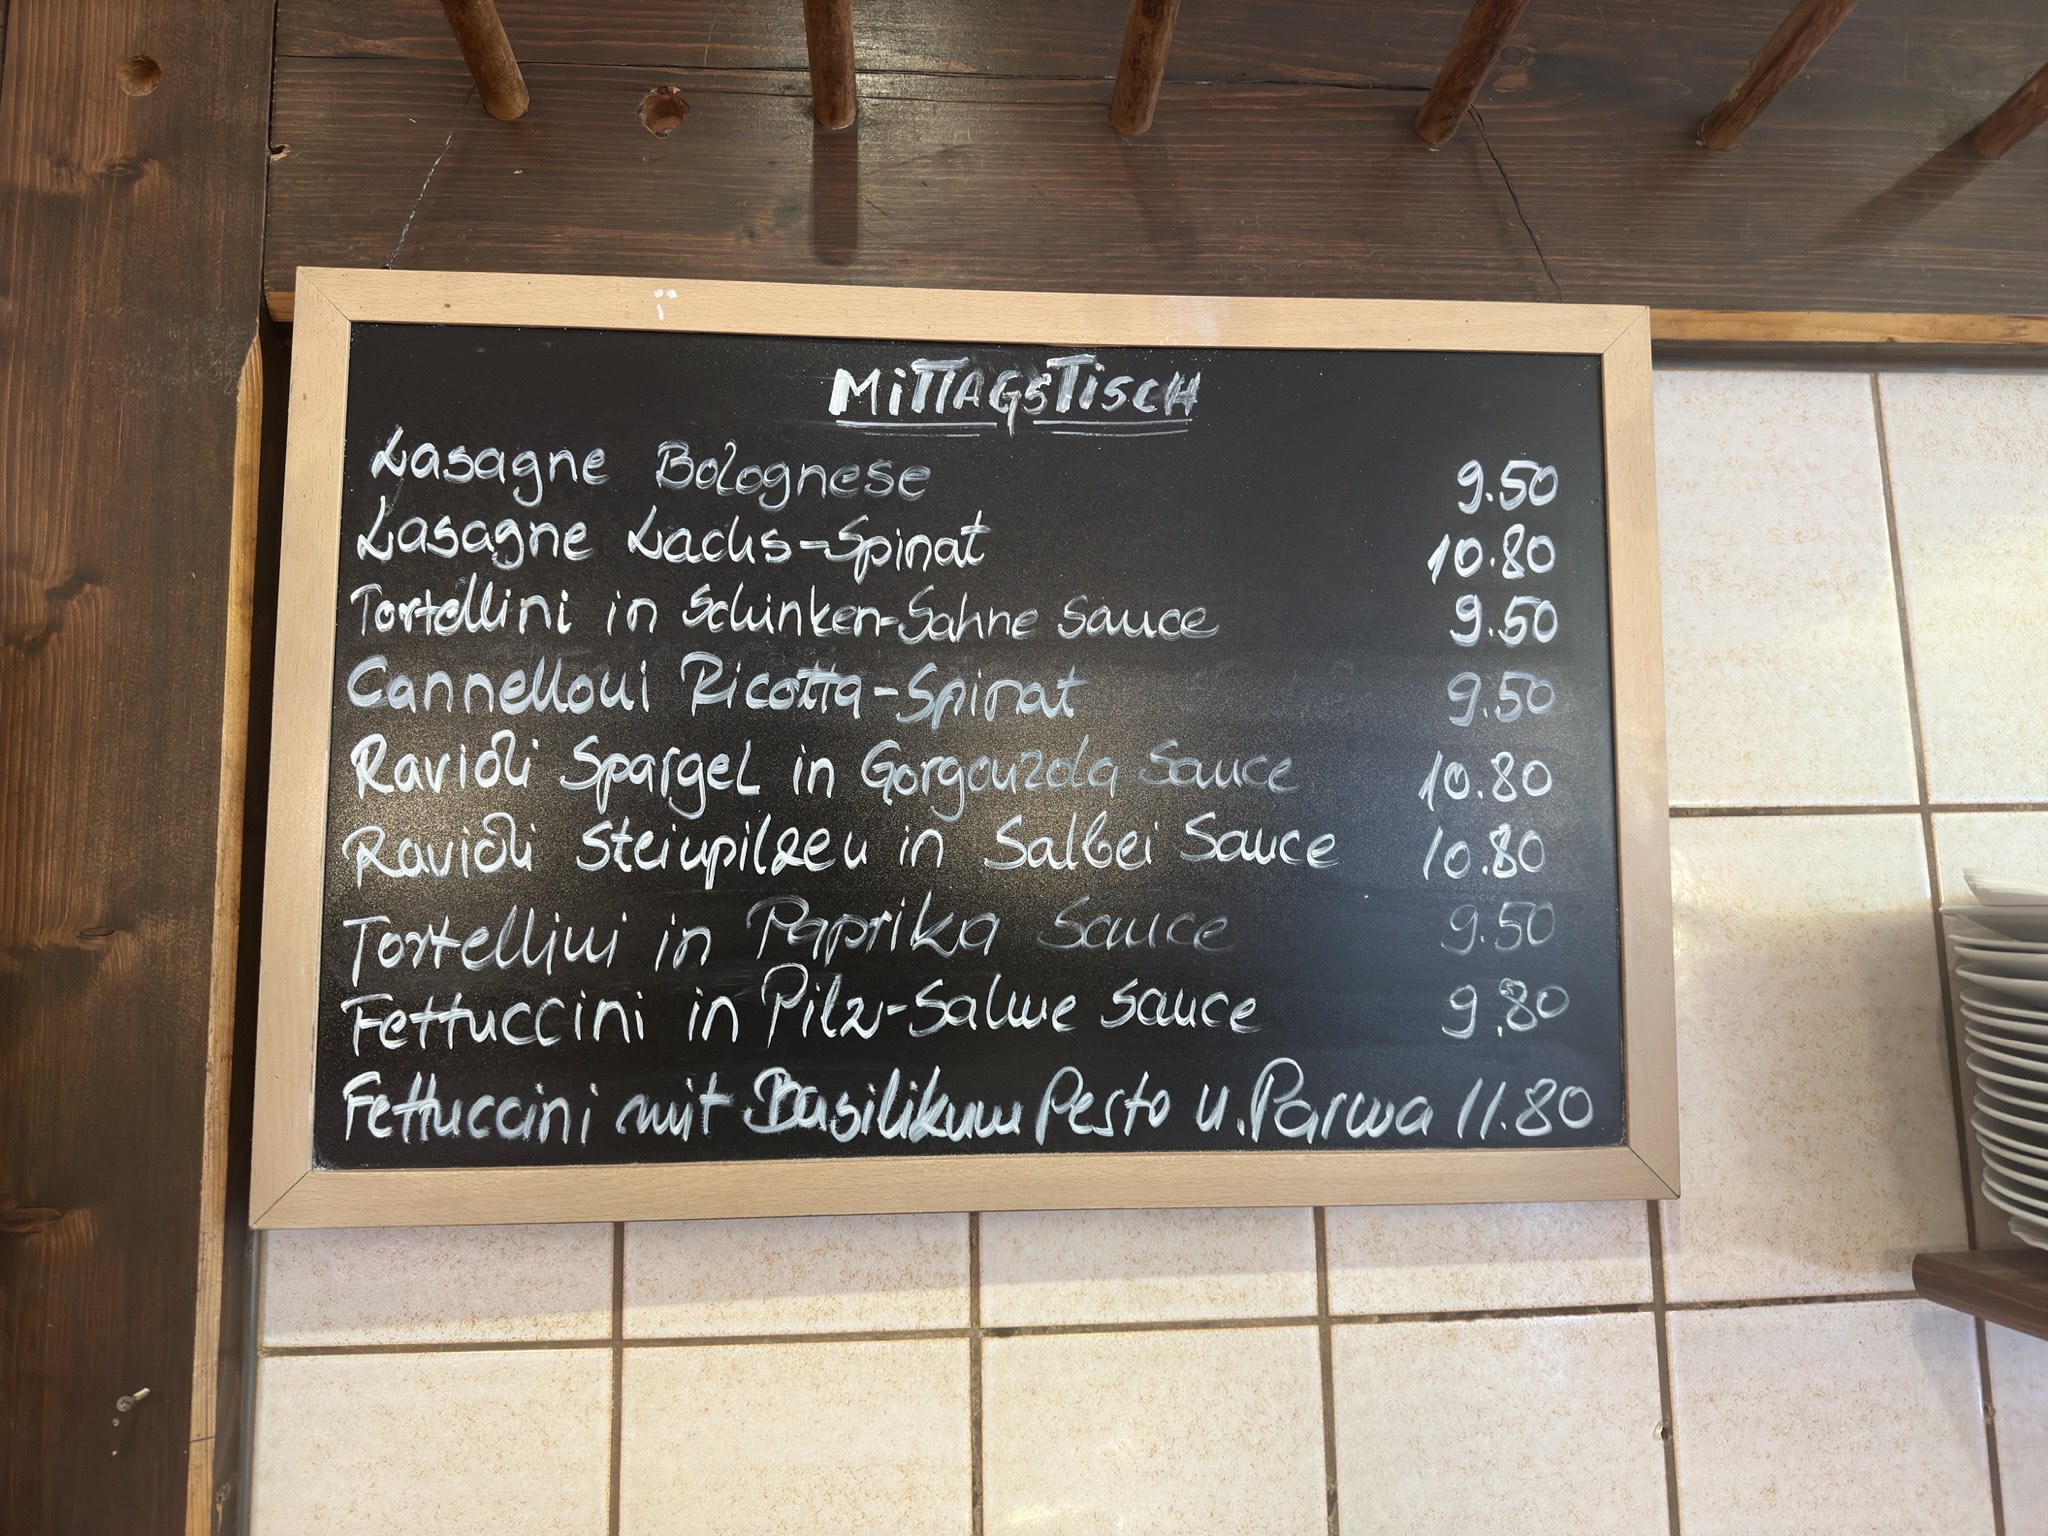 MiTTAGSTiSCH
Lasagne Bolognese 9.50
Lasagne Lachs-Spinat 10.80
Tortellini in Schinken-Sahne Sauce 9.50
Cannelloni Ricotta-Spinat 9.50
Ravioli Spargel in Gorgonzola Sauce 10.80
Ravioli Steinpilzen in Salbei Sauce 10.80
Tortellini in Paprika Sauce 9.50
Fettuccini in Pilz-Sahne Sauce 9.80
Fettuccini mit Basilikum Pesto u. Parma 11.80